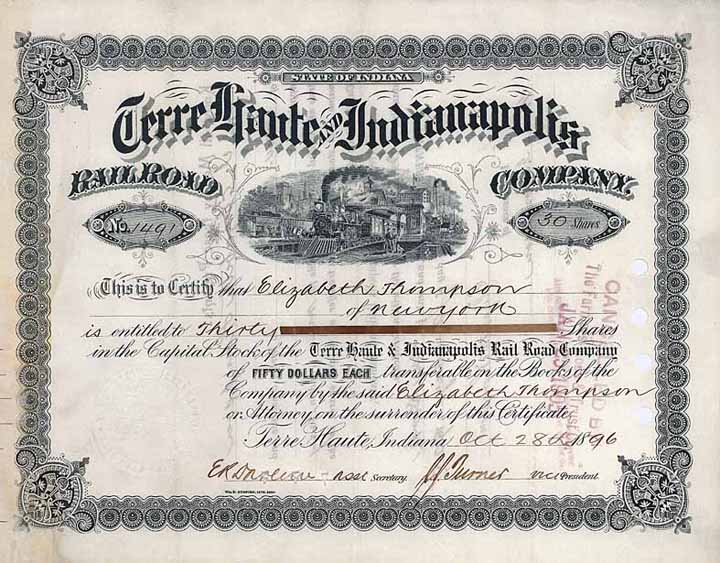 STATE OF INDIANA
Terre Haute AND Indianapolis
RAILROAD COMPANY
No. 1491
30 Shares
This is to Certify that Elizabeth Thompson
of New York
is entitled to Thirty Shares
in the Capital Stock of the Terre Haute & Indianapolis Rail Road Company
of FIFTY DOLLARS EACH transferable on the Books of the
Company by the said Elizabeth Thompson
or Attorney on the surrender of this Certificate
Terre Haute, Indiana Oct 28th 1896
Asst Secretary. J. J. Turner Vice President.